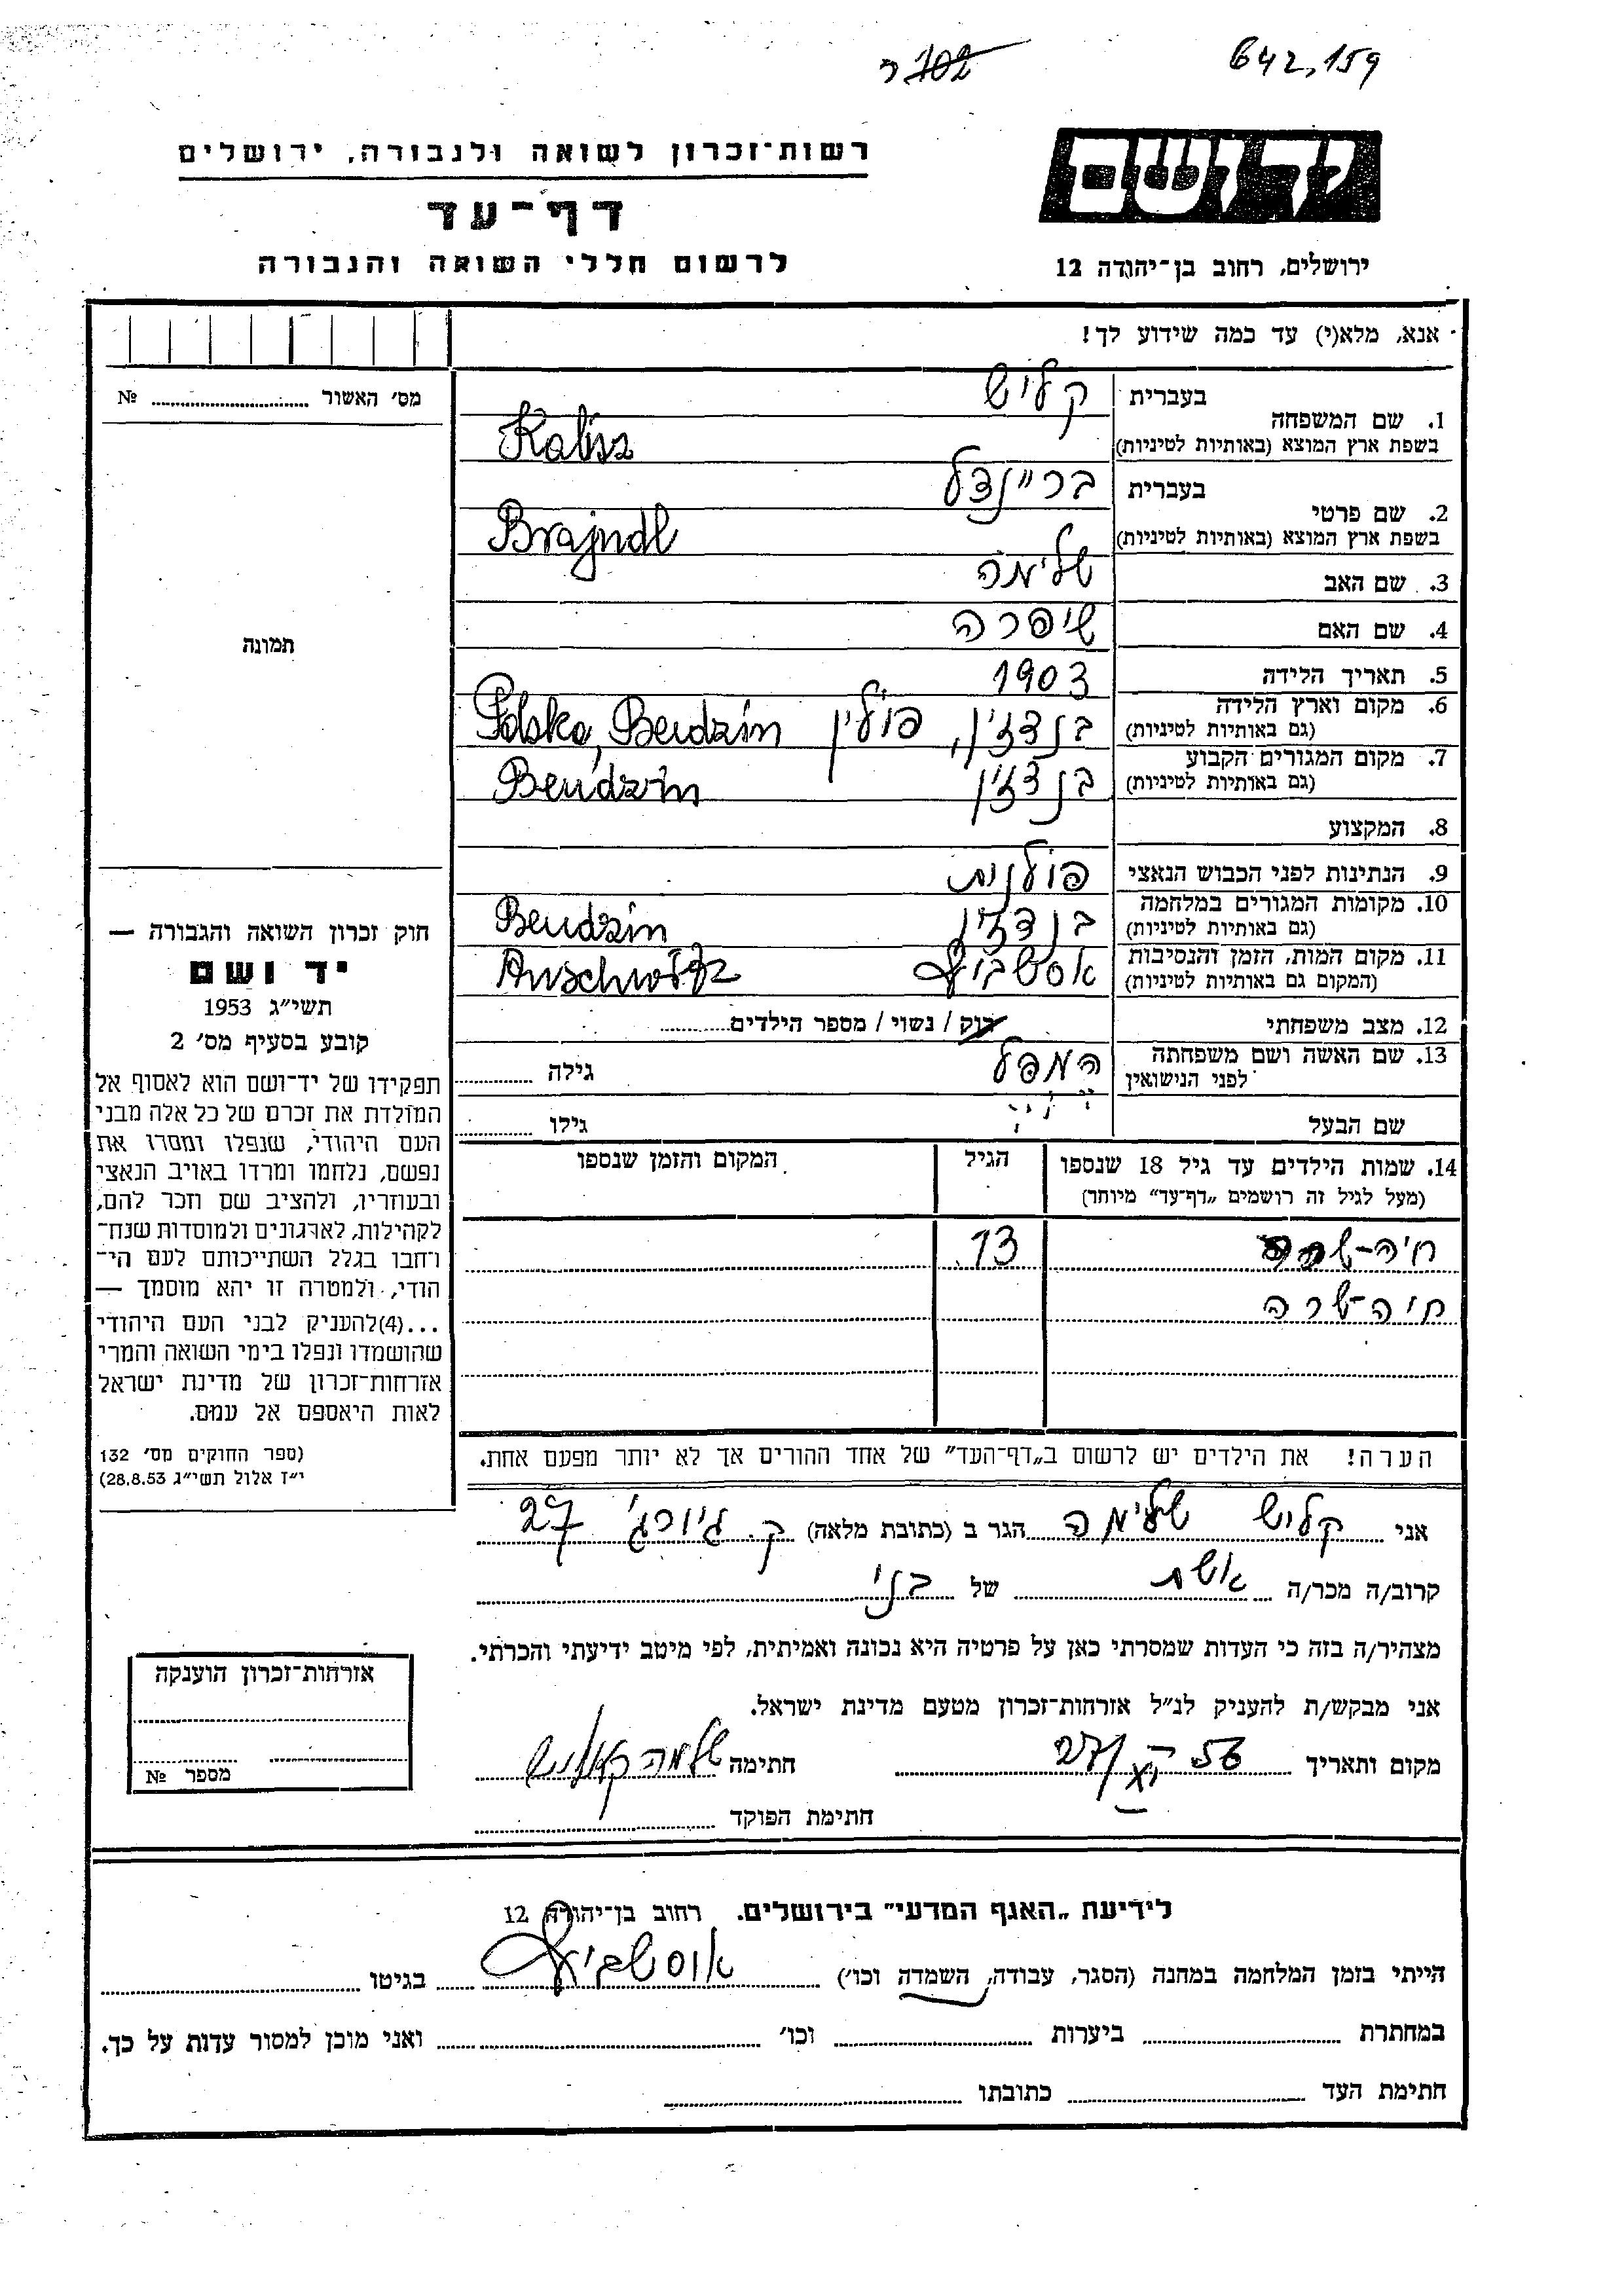 ר 702
642,159
יד ושם
ירושלים, רחוב בן־יהודה 12
רשות־זכרון לשואה ולגבורה, ירושלים
דף־עד
לרשום חללי השואה והגבורה
אנא, מלא(י) עד כמה שידוע לך!
מס׳ האשור № ........
תמונה
1. שם המשפחה
בעברית קליש
בשפת ארץ המוצא (באותיות לטיניות) Kalisz
2. שם פרטי
בעברית בריינדל
בשפת ארץ המוצא (באותיות לטיניות) Brajndl
3. שם האב שלימה
4. שם האם שיפרה
5. תאריך הלידה 1903
6. מקום וארץ הלידה
(גם באותיות לטיניות) בנדזין, פולין Polska, Bendzin
7. מקום המגורים הקבוע
(גם באותיות לטיניות) בנדזין Bendzin
8. המקצוע
9. הנתינות לפני הכבוש הנאצי פולנית
10. מקומות המגורים במלחמה
(גם באותיות לטיניות) בנדזין Bendzin
11. מקום המות, הזמן והנסיבות
(המקום גם באותיות לטיניות) אושביץ Auschwitz
12. מצב משפחתי רוק / נשוי / מספר הילדים........
13. שם האשה ושם משפחתה
לפני הנישואין גילה ........
שם הבעל גילו ........
14. שמות הילדים עד גיל 18 שנספו
(מעל לגיל זה רושמים „דף־עד” מיוחד)
הגיל
המקום והזמן שנספו
חיה-שרה 13
חיה-שרה
הערה! את הילדים יש לרשום ב„דף־העד” של אחד ההורים אך לא יותר מפעם אחת.
חוק זכרון השואה והגבורה —
יד ושם
תשי״ג 1953
קובע בסעיף מס׳ 2
תפקידו של יד־ושם הוא לאסוף אל
המולדת את זכרם של כל אלה מבני
העם היהודי, שנפלו ומסרו את
נפשם, נלחמו ומרדו באויב הנאצי
ובעוזריו, ולהציב שם וזכר להם,
לקהילות, לארגונים ולמוסדות שנח־
רחבו בגלל השתייכותם לעם הי־
הודי, ולמטרה זו יהא מוסמך —
...(4)להעניק לבני העם היהודי
שהושמדו ונפלו בימי השואה והמרי
אזרחות־זכרון של מדינת ישראל
לאות היאספם אל עמם.
(ספר החוקים מס׳ 132
י״ז אלול תשי״ג 28.8.53)
אני קליש שלימה הגר ב (כתובת מלאה) ק. ג'ורג' 27
קרוב/ה מכר/ה אשת של בני
מצהיר/ה בזה כי העדות שמסרתי כאן על פרטיה היא נכונה ואמיתית, לפי מיטב ידיעתי והכרתי.
אני מבקש/ת להעניק לנ״ל אזרחות־זכרון מטעם מדינת ישראל.
מקום ותאריך חתימה
חתימת הפוקד ........
אזרחות־זכרון הוענקה
מספר №
לידיעת „האגף המדעי” בירושלים. רחוב בן־יהודה 12
הייתי בזמן המלחמה במחנה (הסגר, עבודה, השמדה וכו׳) אושביץ בגיטו ........
במחתרת ........ ביערות ........ וכו׳ ........ ואני מוכן למסור עדות על כך.
חתימת העד ........ כתובתו ........